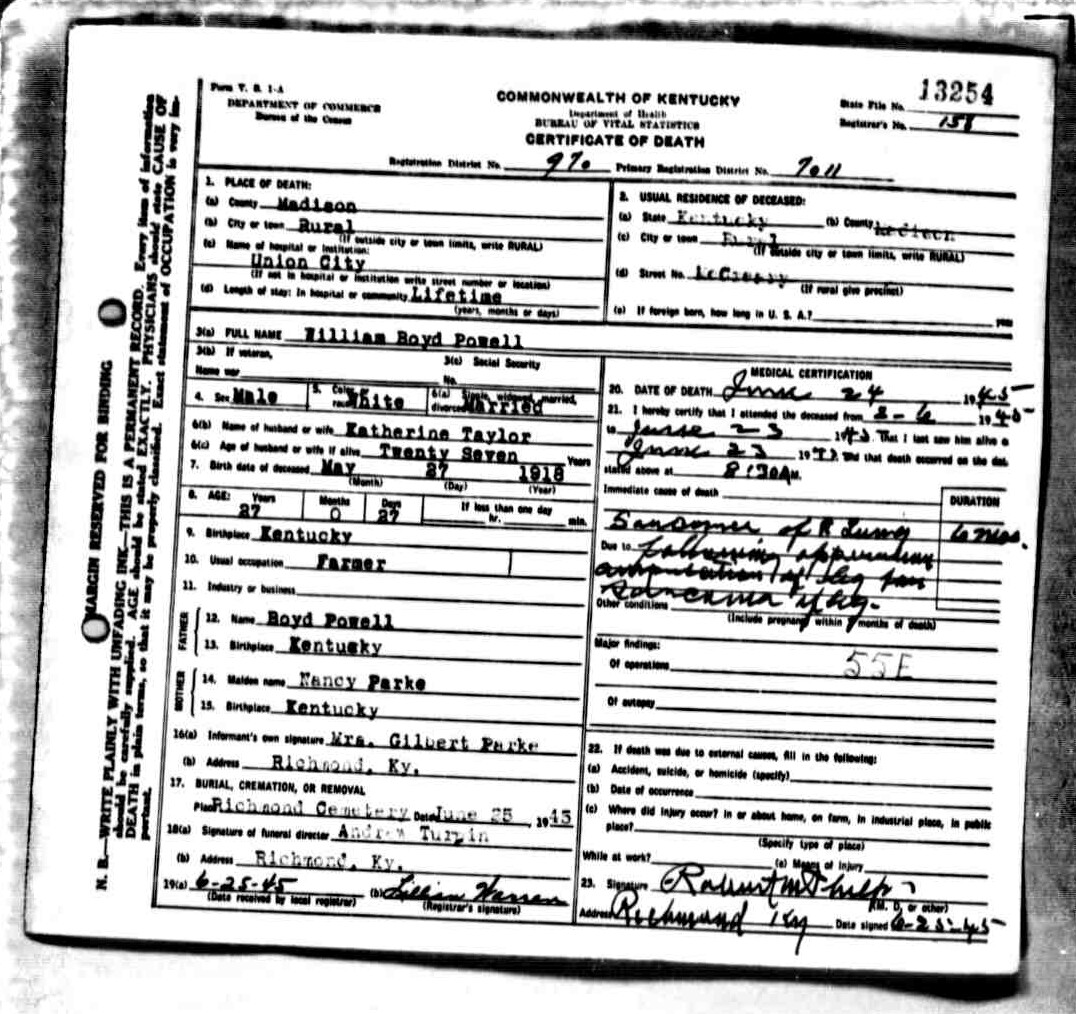 Form V. S. 1-A
DEPARTMENT OF COMMERCE
Bureau of the Census
COMMONWEALTH OF KENTUCKY
Department of Health
BUREAU OF VITAL STATISTICS
CERTIFICATE OF DEATH
State File No. 13254
Registrar's No. 158
Registration District No. 970 Primary Registration District No. 7011
MARGIN RESERVED FOR BINDING
N. B.—WRITE PLAINLY WITH UNFADING INK—THIS IS A PERMANENT RECORD. Every item of information
should be carefully supplied. AGE should be stated EXACTLY. PHYSICIANS should state CAUSE OF
DEATH in plain terms, so that it may be properly classified. Exact statement of OCCUPATION is very im-
portant.
1. PLACE OF DEATH:
(a) County Madison
(b) City or town Rural
(If outside city or town limits, write RURAL)
(c) Name of hospital or institution:
Union City
(If not in hospital or institution write street number or location)
(d) Length of stay: In hospital or community Lifetime
(years, months or days)
2. USUAL RESIDENCE OF DECEASED:
(a) State Kentucky (b) County Madison
(c) City or town Rural
(If outside city or town limits, write RURAL)
(d) Street No. McCreary
(If rural give precinct)
(e) If foreign born, how long in U. S. A.? years
3(a) FULL NAME William Boyd Powell
3(b) If veteran,
Name war
3(c) Social Security
No.
4. Sex Male
5. Color or
race White
6(a) Single, widowed, married,
divorced Married
6(b) Name of husband or wife Katherine Taylor
6(c) Age of husband or wife if alive Twenty Seven Years
7. Birth date of deceased May 27 1918
(Month) (Day) (Year)
8. AGE: Years Months Days If less than one day
27 0 27 hr. min.
9. Birthplace Kentucky
10. Usual occupation Farmer
11. Industry or business
FATHER
12. Name Boyd Powell
13. Birthplace Kentucky
MOTHER
14. Maiden name Nancy Parke
15. Birthplace Kentucky
16(a) Informant's own signature Mrs. Gilbert Parke
(b) Address Richmond, Ky.
17. BURIAL, CREMATION, OR REMOVAL
Place Richmond Cemetery Date June 25, 1945
18(a) Signature of funeral director Andrew Turpin
(b) Address Richmond, Ky.
19(a) 6-25-45 (b) Lillian Warren
(Date received by local registrar) (Registrar's signature)
MEDICAL CERTIFICATION
20. DATE OF DEATH June 24 1945
21. I hereby certify that I attended the deceased from 2-6 1945
to June 23 1945 That I last saw him alive on
June 23 19 and that death occurred on the date
stated above at 8:30 A m.
Immediate cause of death
DURATION
of R Lung 6 mos.
Due to following
amputation of leg for
Sarcoma of leg.
Other conditions
(Include pregnancy within months of death)
Major findings:
Of operations 55E
Of autopsy
22. If death was due to external causes, fill in the following:
(a) Accident, suicide, or homicide (specify)
(b) Date of occurrence
(c) Where did injury occur? In or about home, on farm, in industrial place, in public
place?
(Specify type of place)
While at work? (e) Means of injury
23. Signature Robert M Phelps
(M. D. or other)
Address Richmond Ky Date signed 6-25-45